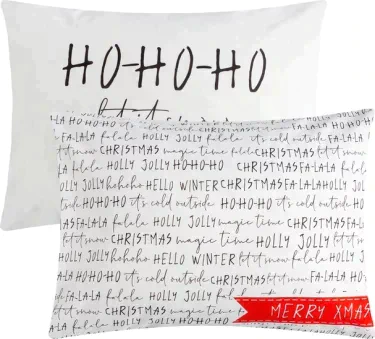 HO-HO-HO
let it
LA-LA HO-HO-HO it's cold outside HO-HO-HO it's cold
FA-LA-LA falala HOLLY JOLLY CHRISTMAS
let it snow CHRISTMAS magic time HOLLY JOLLY
falala HOLLY JOLLY HO-HO-HO CHRISTMAS FA-LA-LA
HOLLY JOLLY hohoho HELLO WINTER CHRISTMAS FA-LA-LA HOLLY
HO-HO-HO it's cold outside HO-HO-HO it's cold outside
FA-LA-LA falala HOLLY JOLLY magic time CHRISTMAS
let it snow CHRISTMAS magic time HOLLY JOLLY
HOLLY JOLLY hohoho HELLO WINTER HOLLY JOLLY
HO-HO-HO it's cold outside CHRISTMAS FA-LA-LA
FA-LA-LA falala HOLLY JOLLY HO-HO-HO
CHRISTMAS magic time
MERRY XMAS